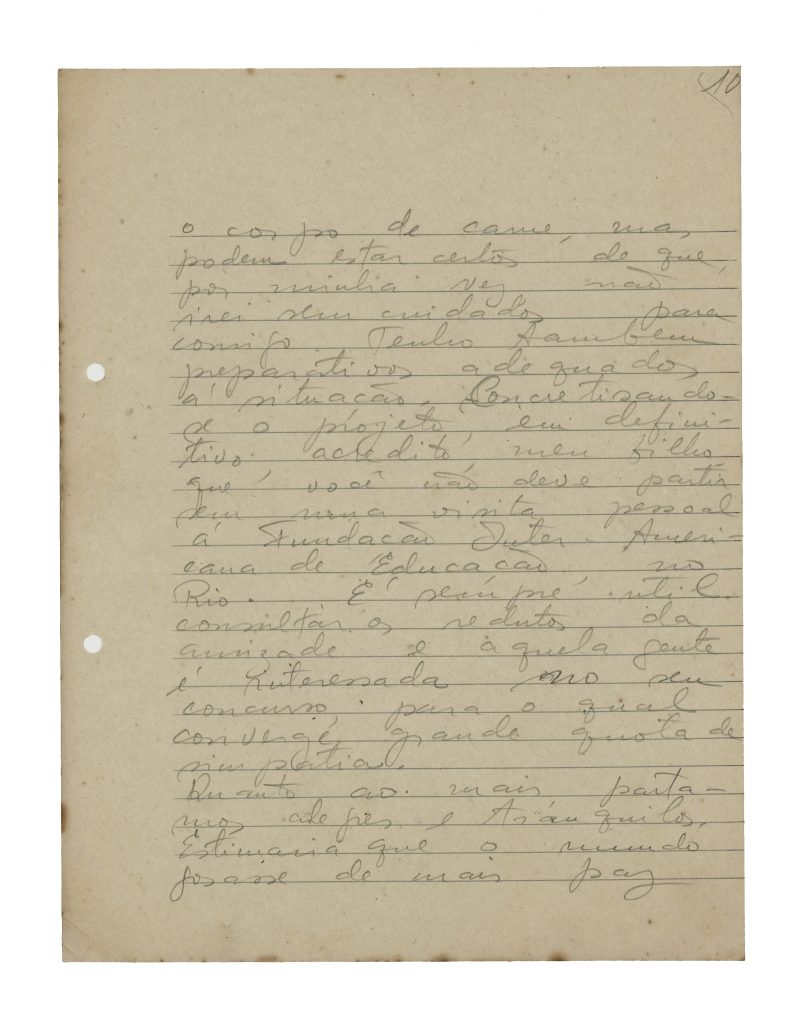 10
o corpo de carne, mas,
podem estar certos de que,
por minha vez não
irei sem cuidados para
comigo. Tenho tambem
preparativos adequados
á situacão. Concretisando-
se o projeto, em defini-
tivo acredito, meu filho,
que você não deve partir
sem uma visita pessoal
á Fundacão Inter-Ameri-
cana de Educacão no
Rio. É sempre util
consultar os redutos da
amizade e aquela gente
é interessada no seu
concurso, para o qual
converge grande quota de
simpatia.
Quanto ao mais parta-
mos alegres e tránquilos.
Estimaria que o mundo
gosasse de mais paz